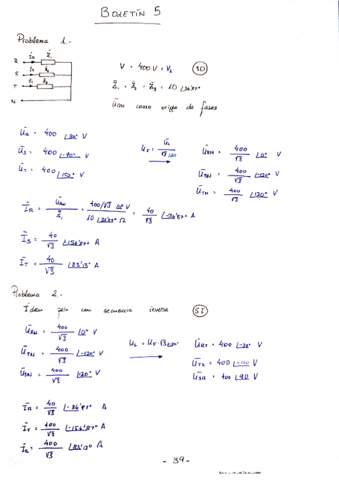 BOLETÍN 5
Problema 1.
R
S
T
N
V = 400 V = V_L
SD
Z̄₁ = Z̄₂ = Z̄₃ = 10 /36'87°
Ū_RN como origen de fases
400 /30° V
400 /-90° V
Ū_T = 400 /150° V
Ū_RN = 400/√3 /0° V
400/√3 /-120° V
Ū_TN = 400/√3 /120° V
Ī_R = Ū_RN / Z̄₁ = 400/√3 /0° V / 10 /36'87° Ω = 40/√3 /-36'87° A
Ī_S = 40/√3 /-156'87° A
Ī_T = 40/√3 /83'13° A
Problema 2.
Ídem pero con secuencia inversa
SI
Ū_RN = 400/√3 /0° V
Ū_TN = 400/√3 /-120° V
Ū_SN = 400/√3 /120° V
400 /-30° V
400
400 /90 V
Ī_R = 40/√3 /-36'87° A
Ī_T = 400/√3 /-156'87° A
Ī_S = 400/√3 /83'13° A
- 39 -